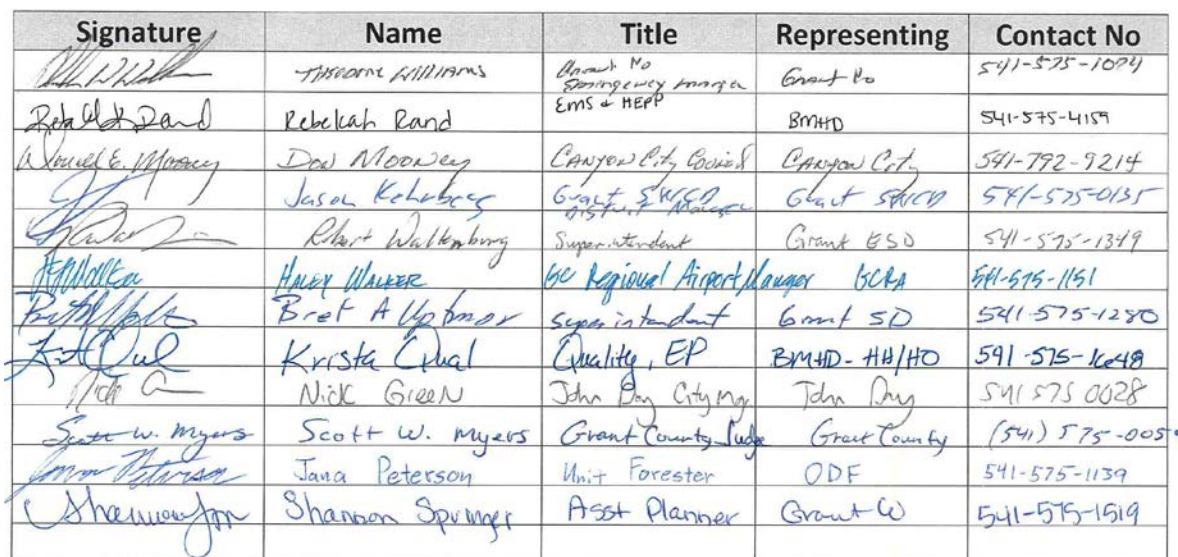 Signature Name Title Representing Contact No
THEODORE WILLIAMS Grant Co Emergency Manager Grant Co 541-575-1074
Rebekah Rand EMS & HEPP BMHD 541-575-4159
Donald E. Mooney Don Mooney Canyon City Council Canyon City 541-792-9214
Jason Kehrberg Grant SWCD District Manager Grant SWCD 541-575-0135
Robert Waltenburg Superintendent Grant ESD 541-575-1349
HWalker HALEY WALKER GC Regional Airport Manager GCRA 541-575-1151
Bret A Uptmor superintendent Grant SD 541-575-1280
Krista Qual Quality, EP BMHD-HH/HO 541-575-1648
Nick Green John Day City Mgr John Day 541 575 0028
Scott W. Myers Scott W. Myers Grant County Judge Grant County (541) 575-005
Jana Peterson Jana Peterson Unit Forester ODF 541-575-1139
Shannon Springer Asst Planner Grant Co 541-575-1519